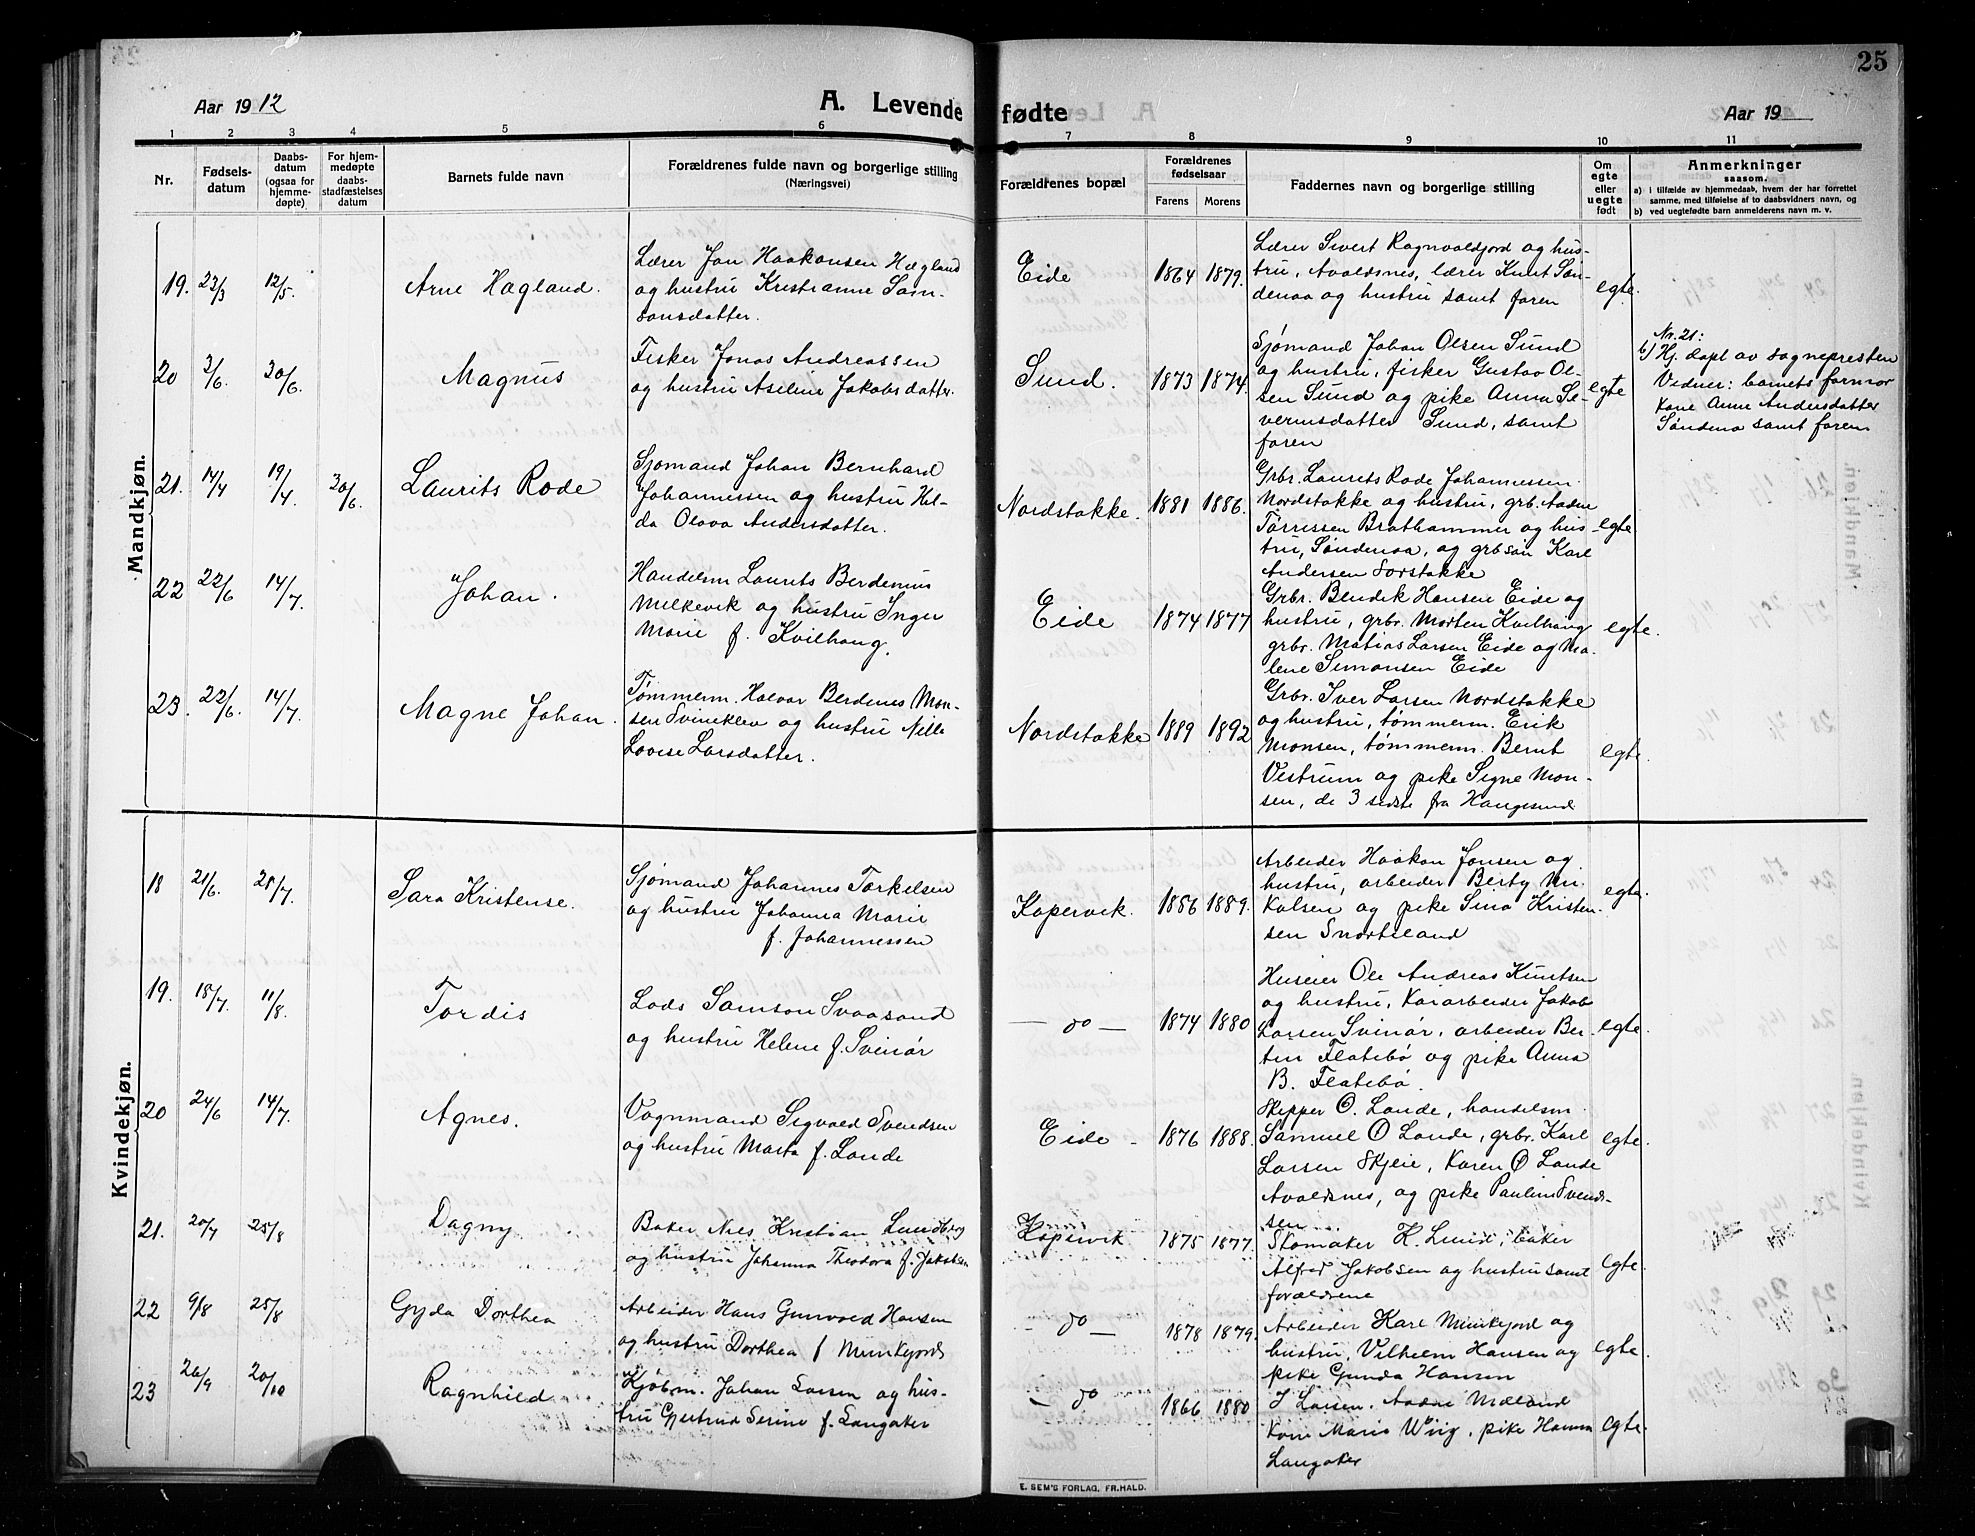 25
Aar 1912
A. Levende fødte
Aar 19
1 2 3 4 5 6 7 8 9 10 11
Nr.
Fødsels-
datum
Daabs-
datum
(ogsaa for
hjemme-
døpte)
For hjem-
medøpte
daabs-
stadfæstelses
datum
Barnets fulde navn
Forældrenes fulde navn og borgerlige stilling
(Næringsvei)
Forældrenes bopæl
Forældrenes
fødselsaar
Farens Morens
Faddernes navn og borgerlige stilling
Om
egte
eller
uegte
født
Anmerkninger
saasom.
a) i tilfælde av hjemmedaab, hvem der har forrettet
samme, med tilføielse af to daabsvidners navn, og
b) ved uegtefødte barn anmelderens navn m. v.
Mandkjøn.
19. 23/3 12/5. Arne Hagland.
Lærer Jon Haakonsen Hægland
og hustru Kristianne Sam-
sonsdatter.
Eide 1864 1879.
Lærer Sivert Ragnvaldjord og hus-
tru, Avaldsnes, lærer Knut Søn-
denaa og hustru samt faren
egte.
20 2/6. 30/6. Magnus
Fisker Jonas Andreassen
og hustru Aseline Jakobsdatter.
Sund. 1873 1874.
Sjømand Johan Olsen Sund
og hustru, fisker Gustav Ol-
sen Sund og pike Anna Se-
verinsdatter Sund, samt
faren
egte
Nr. 21:
b) Hj. døpt av sognepresten
Vidner: barnets farmor
kone Anne Andersdatter
Søndena samt faren
21. 14/4 19/4. 30/6. Laurits Rode
Sjømand Johan Bernhard
Johannessen og hustru Hel-
da Olava Andersdatter.
Nordstokke. 1881 1886.
Grbr. Laurits Rode Johannessen
Nordstokke og hustru, grb. Aadne
Tørressen Brathammer og hus-
tru, Søndenaa, og grbsøn Karl
Andersen Sørstokke
egte
22 22/6 14/7. Johan.
Handelsm Laurits Berdenius
Melkevik og hustru Inger
Marie f. Kvilhaug.
Eide 1874 1877
Grbr. Bendik Hansen Eide og
hustru, grbr. Morten Kvilhaug
grbr. Matias Larsen Eide og Ma-
lene Simonsen Eide
egte.
23. 22/6. 14/7. Magne Johan.
Tømmerm. Halvor Berdenes Mon-
sen Svineklev og hustru Nille
Lovise Larsdatter.
Nordstokke 1889 1892
Grbr. Iver Larsen Nordstokke
og hustru, tømmerm. Erik
Monsen, tømmerm. Bernt
Vestrum og pike Signe Mon-
sen, de 3 sidste fra Haugesund
egte.
Kvindekjøn.
18 21/6. 21/7. Sara Kristense.
Sjømand Johannes Torkelsen
og hustru Johanna Marie
f. Johannessen
Kopervik. 1886 1889.
Arbeider Haakon Jonsen og
hustru, arbeider Berty Mi-
kalsen og pike Sina Kristen-
sen Snorteland
egte.
19. 18/7. 11/8. Tordis
Lods Samson Svaasand
og hustru Helene f. Svinør
— do — 1874 1880
Huseier Ole Andreas Knutsen
og hustru, kararbeider Jakob
Larsen Svinør, arbeider Ber-
tin Flatebø og pike Anna
B. Flatebø.
egte.
20 24/6 14/7. Agnes.
Vognmand Sigvald Svendsen
og hustru Marta f. Lande
Eide - 1876 1888.
Skipper O. Lande, handelsm.
Samuel O Lande, grbr. Karl
Larsen Skjeie, Karen O Lande
Avaldsnes, og pike Pauline Svend-
sen
egte.
21. 20/7 25/8 Dagny
Baker Nils Kristian Lundberg
og hustru Johanna Theodora f. Jakobsen
Kopervik 1875 1877.
Skomaker K. Lund, baker
Alfred Jakobsen og hustru samt
forældrene
egte.
22 9/8 25/8 Gyda Dorthea
Arbeider Hans Gunvald Hansen
og hustru Dorthea f Munkejord
- do — 1878 1879.
Arbeider Karl Munkejord og
hustru, Vilhelm Hansen og
pike Gunda Hansen
egte.
23 20/9 20/10 Ragnhild
Kjøbm. Johan Larsen og hus-
tru Gjertrud Serine f. Langaker
- do 1866 1880
J Larsen. Aadne Mæland
kone Maria Wiig, pike Hanna
Langaker
egte.
E. SEM'S FORLAG, FR.HALD.